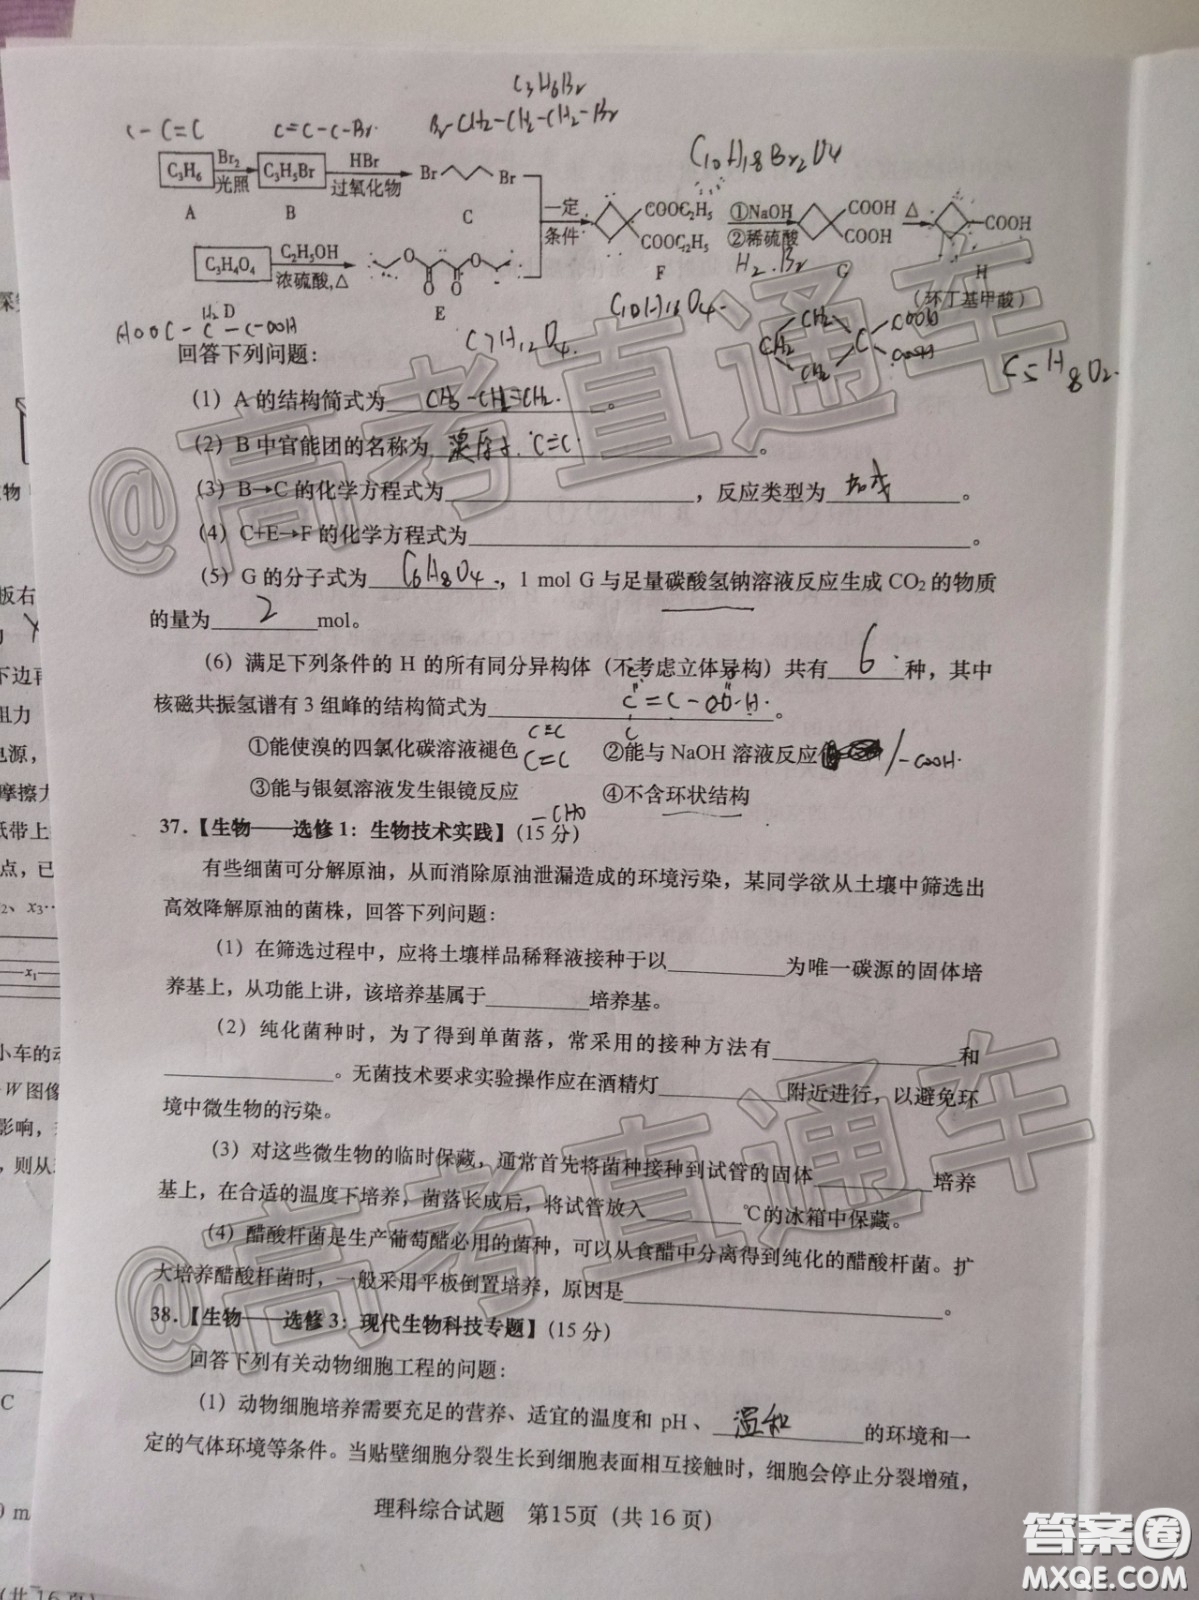 C3H6Br
C-C=C C=C-C-Br. Br-CH2-CH2-CH2-Br
C10H18Br2O4
C3H6 Br2 光照 C3H5Br HBr 过氧化物 Br Br
A B C
一定 条件
COOC2H5 COOC2H5 ①NaOH ②稀硫酸 COOH COOH △ COOH
C3H4O4 C2H5OH 浓硫酸,△ O O O O
H2.Br
F G H
D E (环丁基甲酸)
HOOC-C-C-OOH C7H12O4. C10H16O4.
CH2 CH2 CH2 C COOH COOH C5H8O2.
回答下列问题:
(1) A的结构简式为 CH3-CH=CH2. 。
(2) B中官能团的名称为 溴原子. C=C. 。
(3) B→C的化学方程式为 ,反应类型为 加成 。
(4) C+E→F的化学方程式为 。
(5) G的分子式为 C6H8O4 ,1 mol G与足量碳酸氢钠溶液反应生成CO2的物质
的量为 2 mol。
(6) 满足下列条件的H的所有同分异构体(不考虑立体异构)共有 6. 种,其中
核磁共振氢谱有3组峰的结构简式为 。
①能使溴的四氯化碳溶液褪色 C≡C C=C ②能与NaOH溶液反应 /-COOH.
③能与银氨溶液发生银镜反应 -CHO ④不含环状结构
37.【生物——选修1:生物技术实践】(15分)
有些细菌可分解原油,从而消除原油泄漏造成的环境污染,某同学欲从土壤中筛选出
高效降解原油的菌株,回答下列问题:
(1) 在筛选过程中,应将土壤样品稀释液接种于以 为唯一碳源的固体培
养基上,从功能上讲,该培养基属于 培养基。
(2) 纯化菌种时,为了得到单菌落,常采用的接种方法有 和
。无菌技术要求实验操作应在酒精灯 附近进行,以避免环
境中微生物的污染。
(3) 对这些微生物的临时保藏,通常首先将菌种接种到试管的固体 培养
基上,在合适的温度下培养,菌落长成后,将试管放入 ℃的冰箱中保藏。
(4) 醋酸杆菌是生产葡萄醋必用的菌种,可以从食醋中分离得到纯化的醋酸杆菌。扩
大培养醋酸杆菌时,一般采用平板倒置培养,原因是 。
38.【生物——选修3:现代生物科技专题】(15分)
回答下列有关动物细胞工程的问题:
(1) 动物细胞培养需要充足的营养、适宜的温度和pH、 温和 的环境和一
定的气体环境等条件。当贴壁细胞分裂生长到细胞表面相互接触时,细胞会停止分裂增殖,
理科综合试题 第15页(共16页)
@高考直通车
@高考直通车
板右
下边再
阻力
电源,
摩擦力
纸带上
点,已
2、x3…
x1
小车的动
-W图像
影响,
,则从
C
(共16页)
答案圈
MXQE.COM